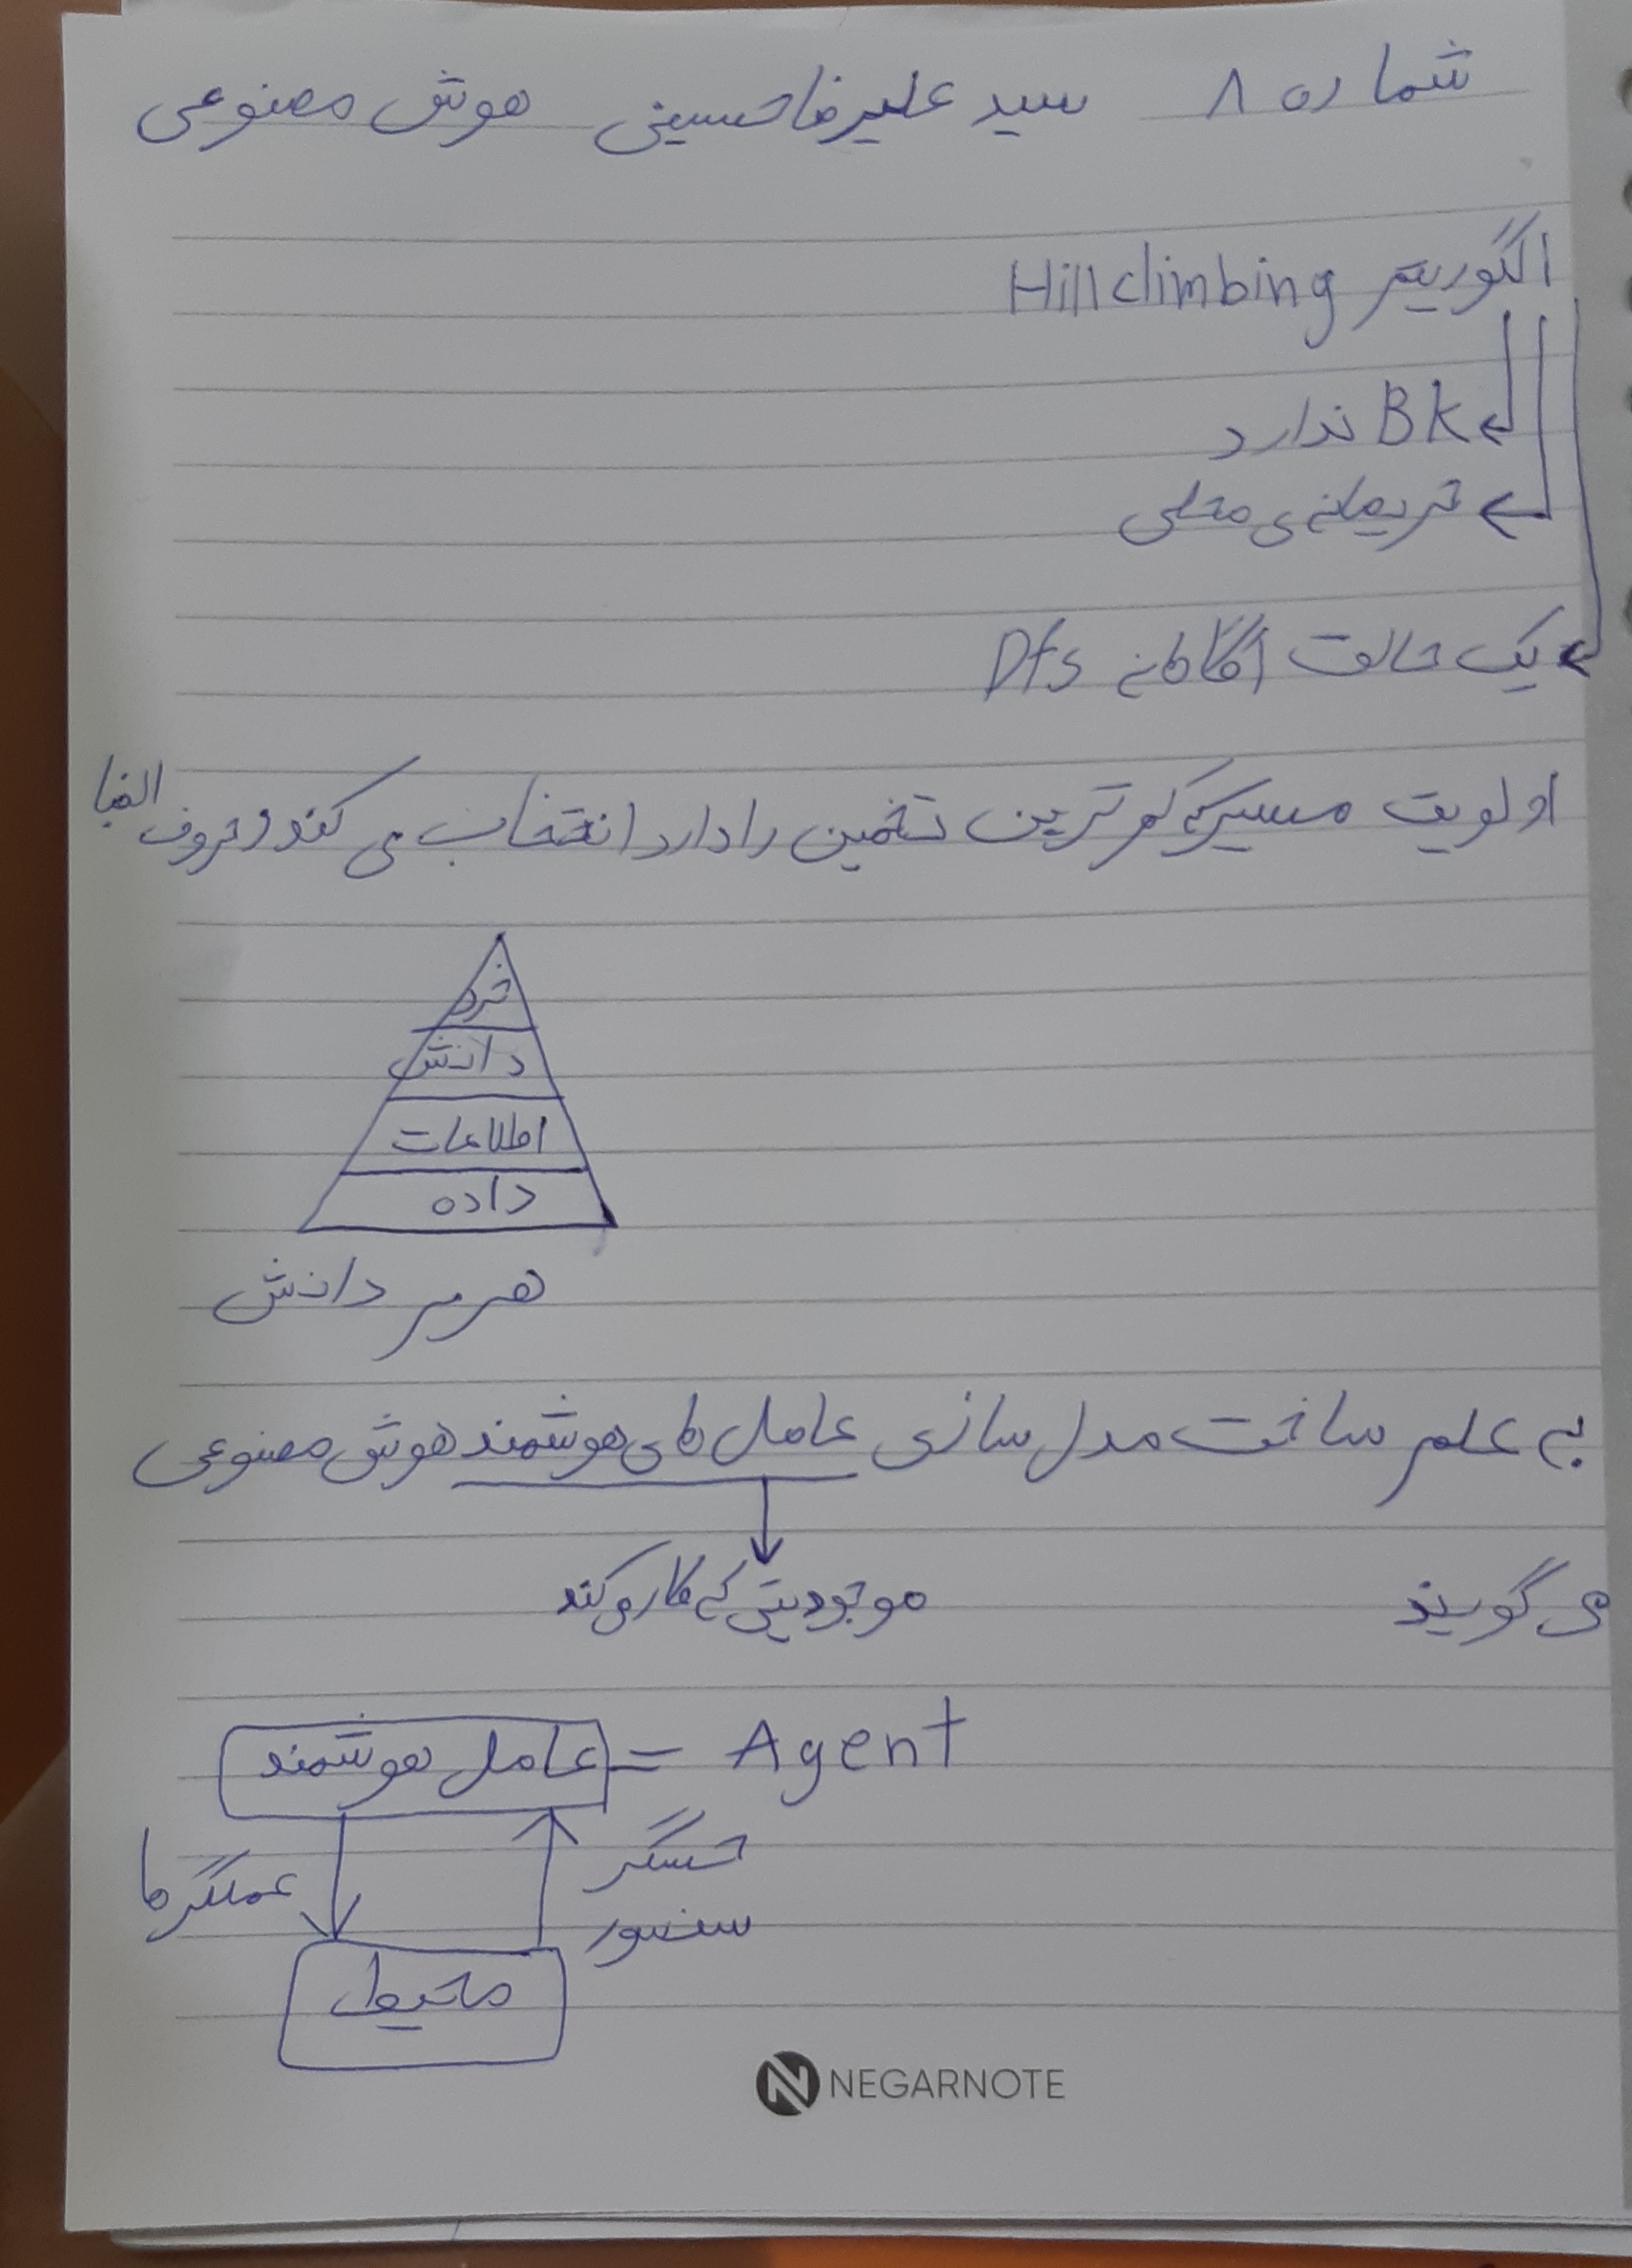 شماره ۸ سید علیرضا حسینی هوش مصنوعی
الگوریتم Hill climbing
Bk ندارد
حریصانه ی محلی
یک حالت آگاهانه Dfs
اولویت مسیر که کم ترین تخمین را دارد انتخاب می کند و حروف الفبا
خرد
دانش
اطلاعات
داده
هرم دانش
به علم ساخت مدل سازی عامل های هوشمند هوش مصنوعی
می گویند
موجودیتی که کار می کند
عامل هوشمند = Agent
حسگر
عملگرها
سنسور
محیط
NEGARNOTE